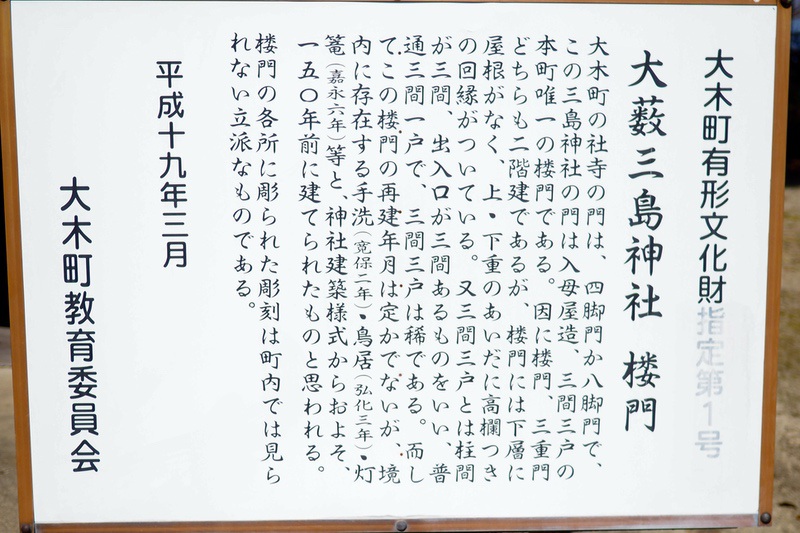 大木町有形文化財指定第1号
大薮三島神社 楼門
大木町の社寺の門は、四脚門か八脚門で、
この三島神社の門は入母屋造、三間三戸の
本町唯一の楼門である。因に楼門、三重門
どちらも二階建であるが、楼門には下層に
屋根がなく、上・下重のあいだに高欄つき
の回縁がついている。又三間三戸とは柱間
が三間、出入口が三間あるものをいい、普
通三間一戸で、三間三戸は稀である。而し
てこの楼門の再建年月は定かでないが、境
内に存在する手洗(寛保二年)・鳥居(弘化三年)・灯
篭(嘉永六年)等と、神社建築様式からおよそ、
一五〇年前に建てられたものと思われる。
楼門の各所に彫られた彫刻は町内では見ら
れない立派なものである。
平成十九年三月
大木町教育委員会